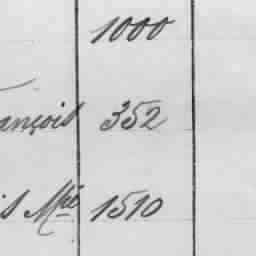 1000
ançois 352
is Mté 1510